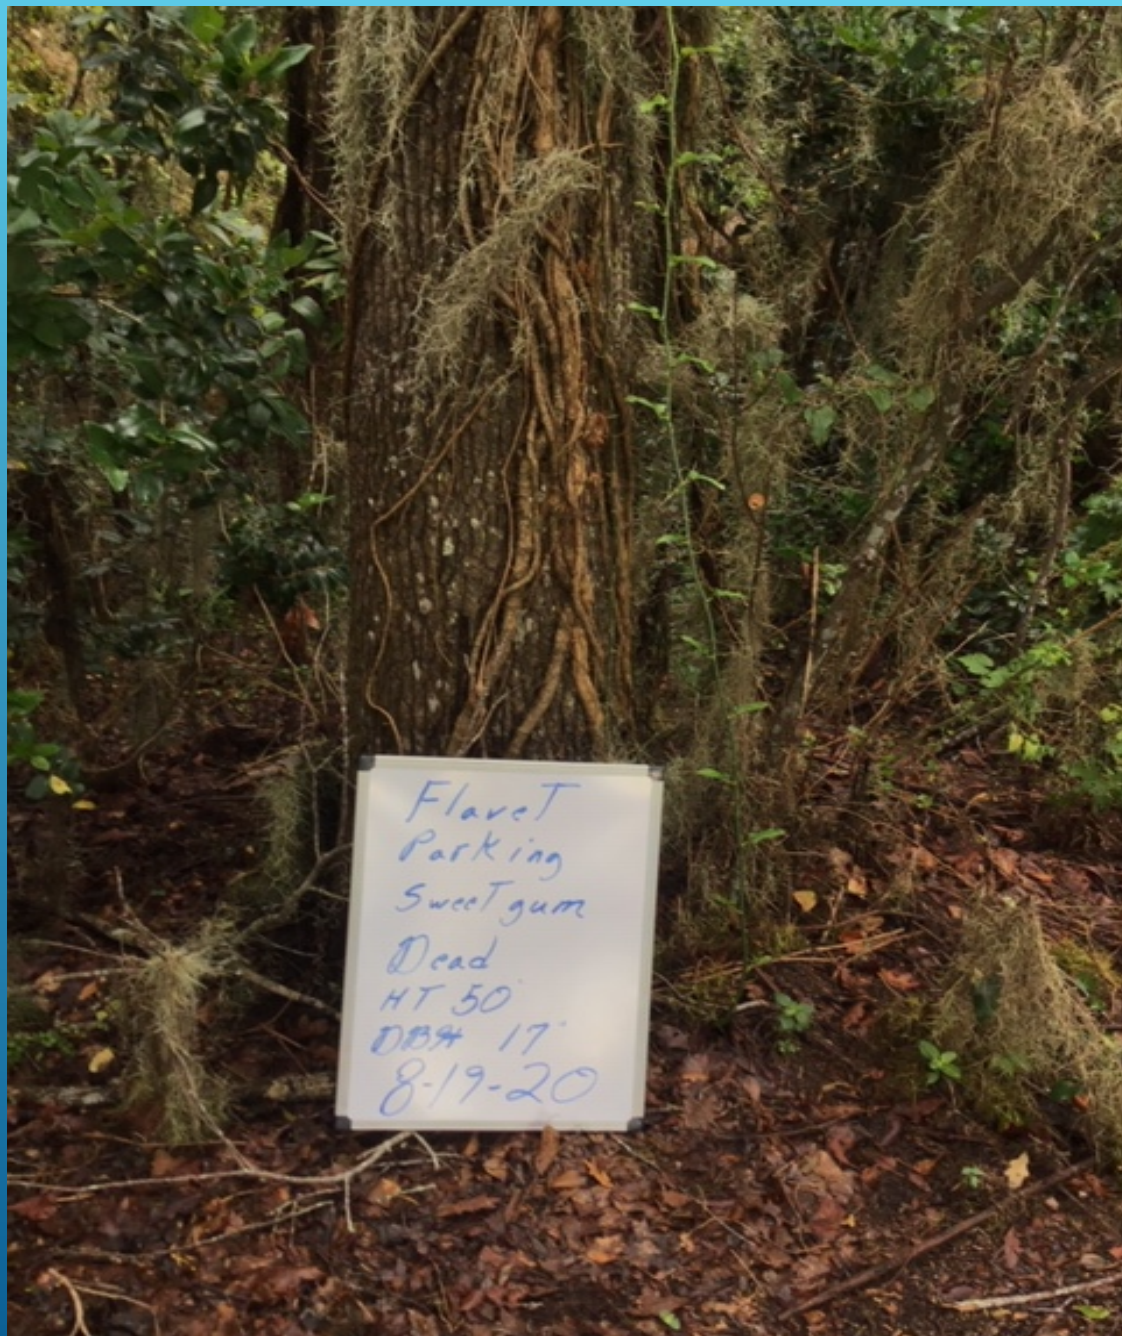 Flavet
Parking
Sweet gum
Dead
HT 50'
DBH 17"
8-19-20